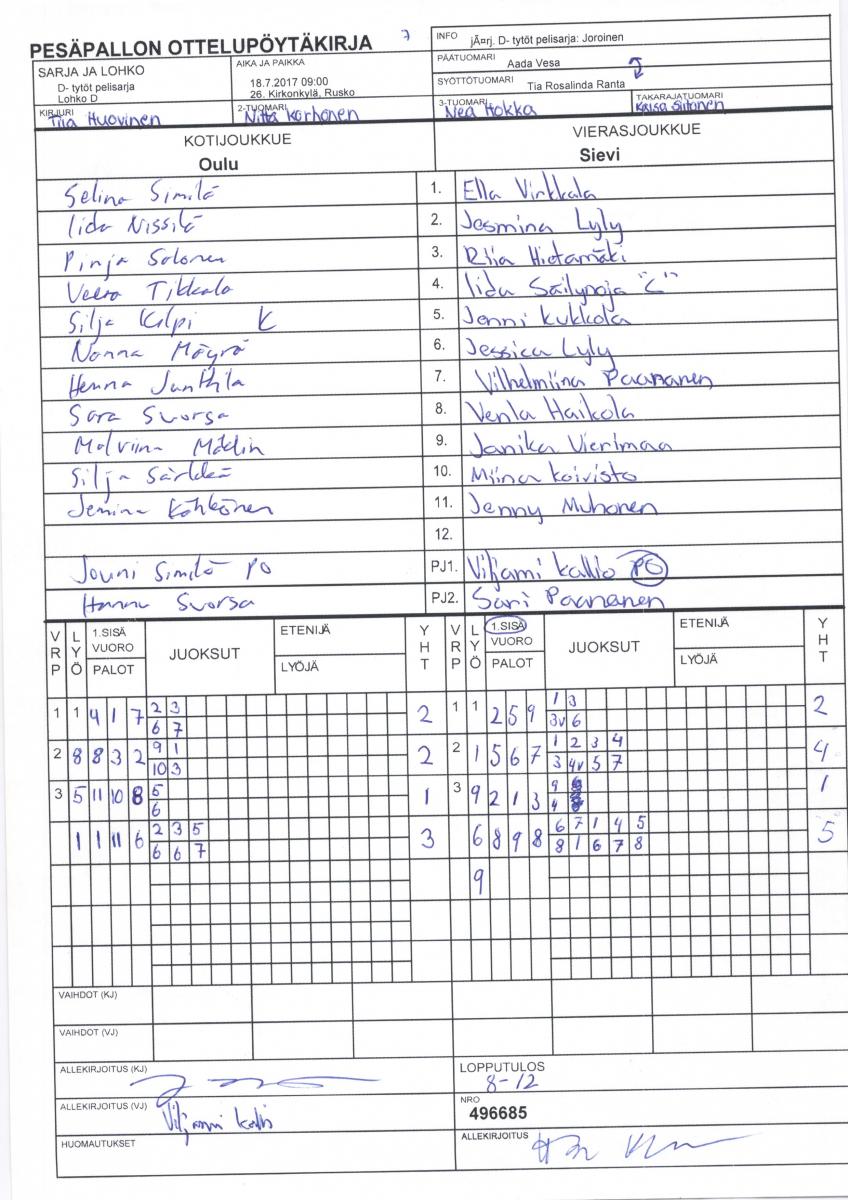 PESÄPALLON OTTELUPÖYTÄKIRJA 7
INFO jÃ¤rj. D- tytöt pelisarja: Joroinen
SARJA JA LOHKO
D- tytöt pelisarja
Lohko D
AIKA JA PAIKKA
18.7.2017 09:00
26. Kirkonkylä, Rusko
PÄÄTUOMARI Aada Vesa
SYÖTTÖTUOMARI Tia Rosalinda Ranta
KIRJURI Tiia Huovinen
2-TUOMARI Korhonen
3-TUOMARI Nea Hokka
TAKARAJATUOMARI Kaisa Siitonen
KOTIJOUKKUE
Oulu
VIERASJOUKKUE
Sievi
Selina Similä 1. Ella Virkkala
Iida Nissilä 2. Jesmina Lyly
Pinja Solonen 3. Riia Hietamäki
Veera Tikkala 4. Iida Säilynoja "C"
Silja Kilpi K 5. Jenni Kukkola
Nanna Möyrä 6. Jessica Lyly
Henna Junttila 7. Vilhelmiina Paananen
Sara Suorsa 8. Venla Haikola
Malviina Mädlin 9. Janika Vierimaa
Silja Särkkä 10. Miina Koivisto
Jemina Köhkönen 11. Jenny Muhonen
12.
Jouni Similä PO PJ1. Viljami Kallio PO
Hannu Suorsa PJ2. Sari Paananen
VRP LYÖ 1.SISÄ VUORO PALOT JUOKSUT ETENIJÄ LYÖJÄ YHT VRP LYÖ 1.SISÄ VUORO PALOT JUOKSUT ETENIJÄ LYÖJÄ YHT
1 1 4 1 7 2 3 2 1 1 2 5 9 1 3 2
6 7 3v 6
2 8 8 3 2 9 1 2 2 1 5 6 7 1 2 3 4 4
10 3 3 4v 5 7
3 5 11 10 8 5 1 3 9 2 1 3 9 1
6 4
1 1 11 6 2 3 5 3 6 8 9 8 6 7 1 4 5 5
6 6 7 8 1 6 7 8
9
VAIHDOT (KJ)
VAIHDOT (VJ)
ALLEKIRJOITUS (KJ)
LOPPUTULOS
8-12
ALLEKIRJOITUS (VJ) Viljami Kallio
NRO
496685
HUOMAUTUKSET
ALLEKIRJOITUS